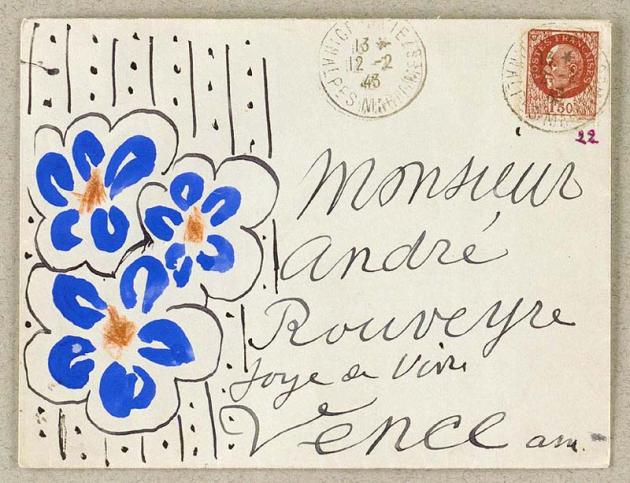 13 *
12 - 2
43
POSTES FRANÇAISES
1F50
22
Monsieur
André
Rouveyre
Joye de Vivre
Vence